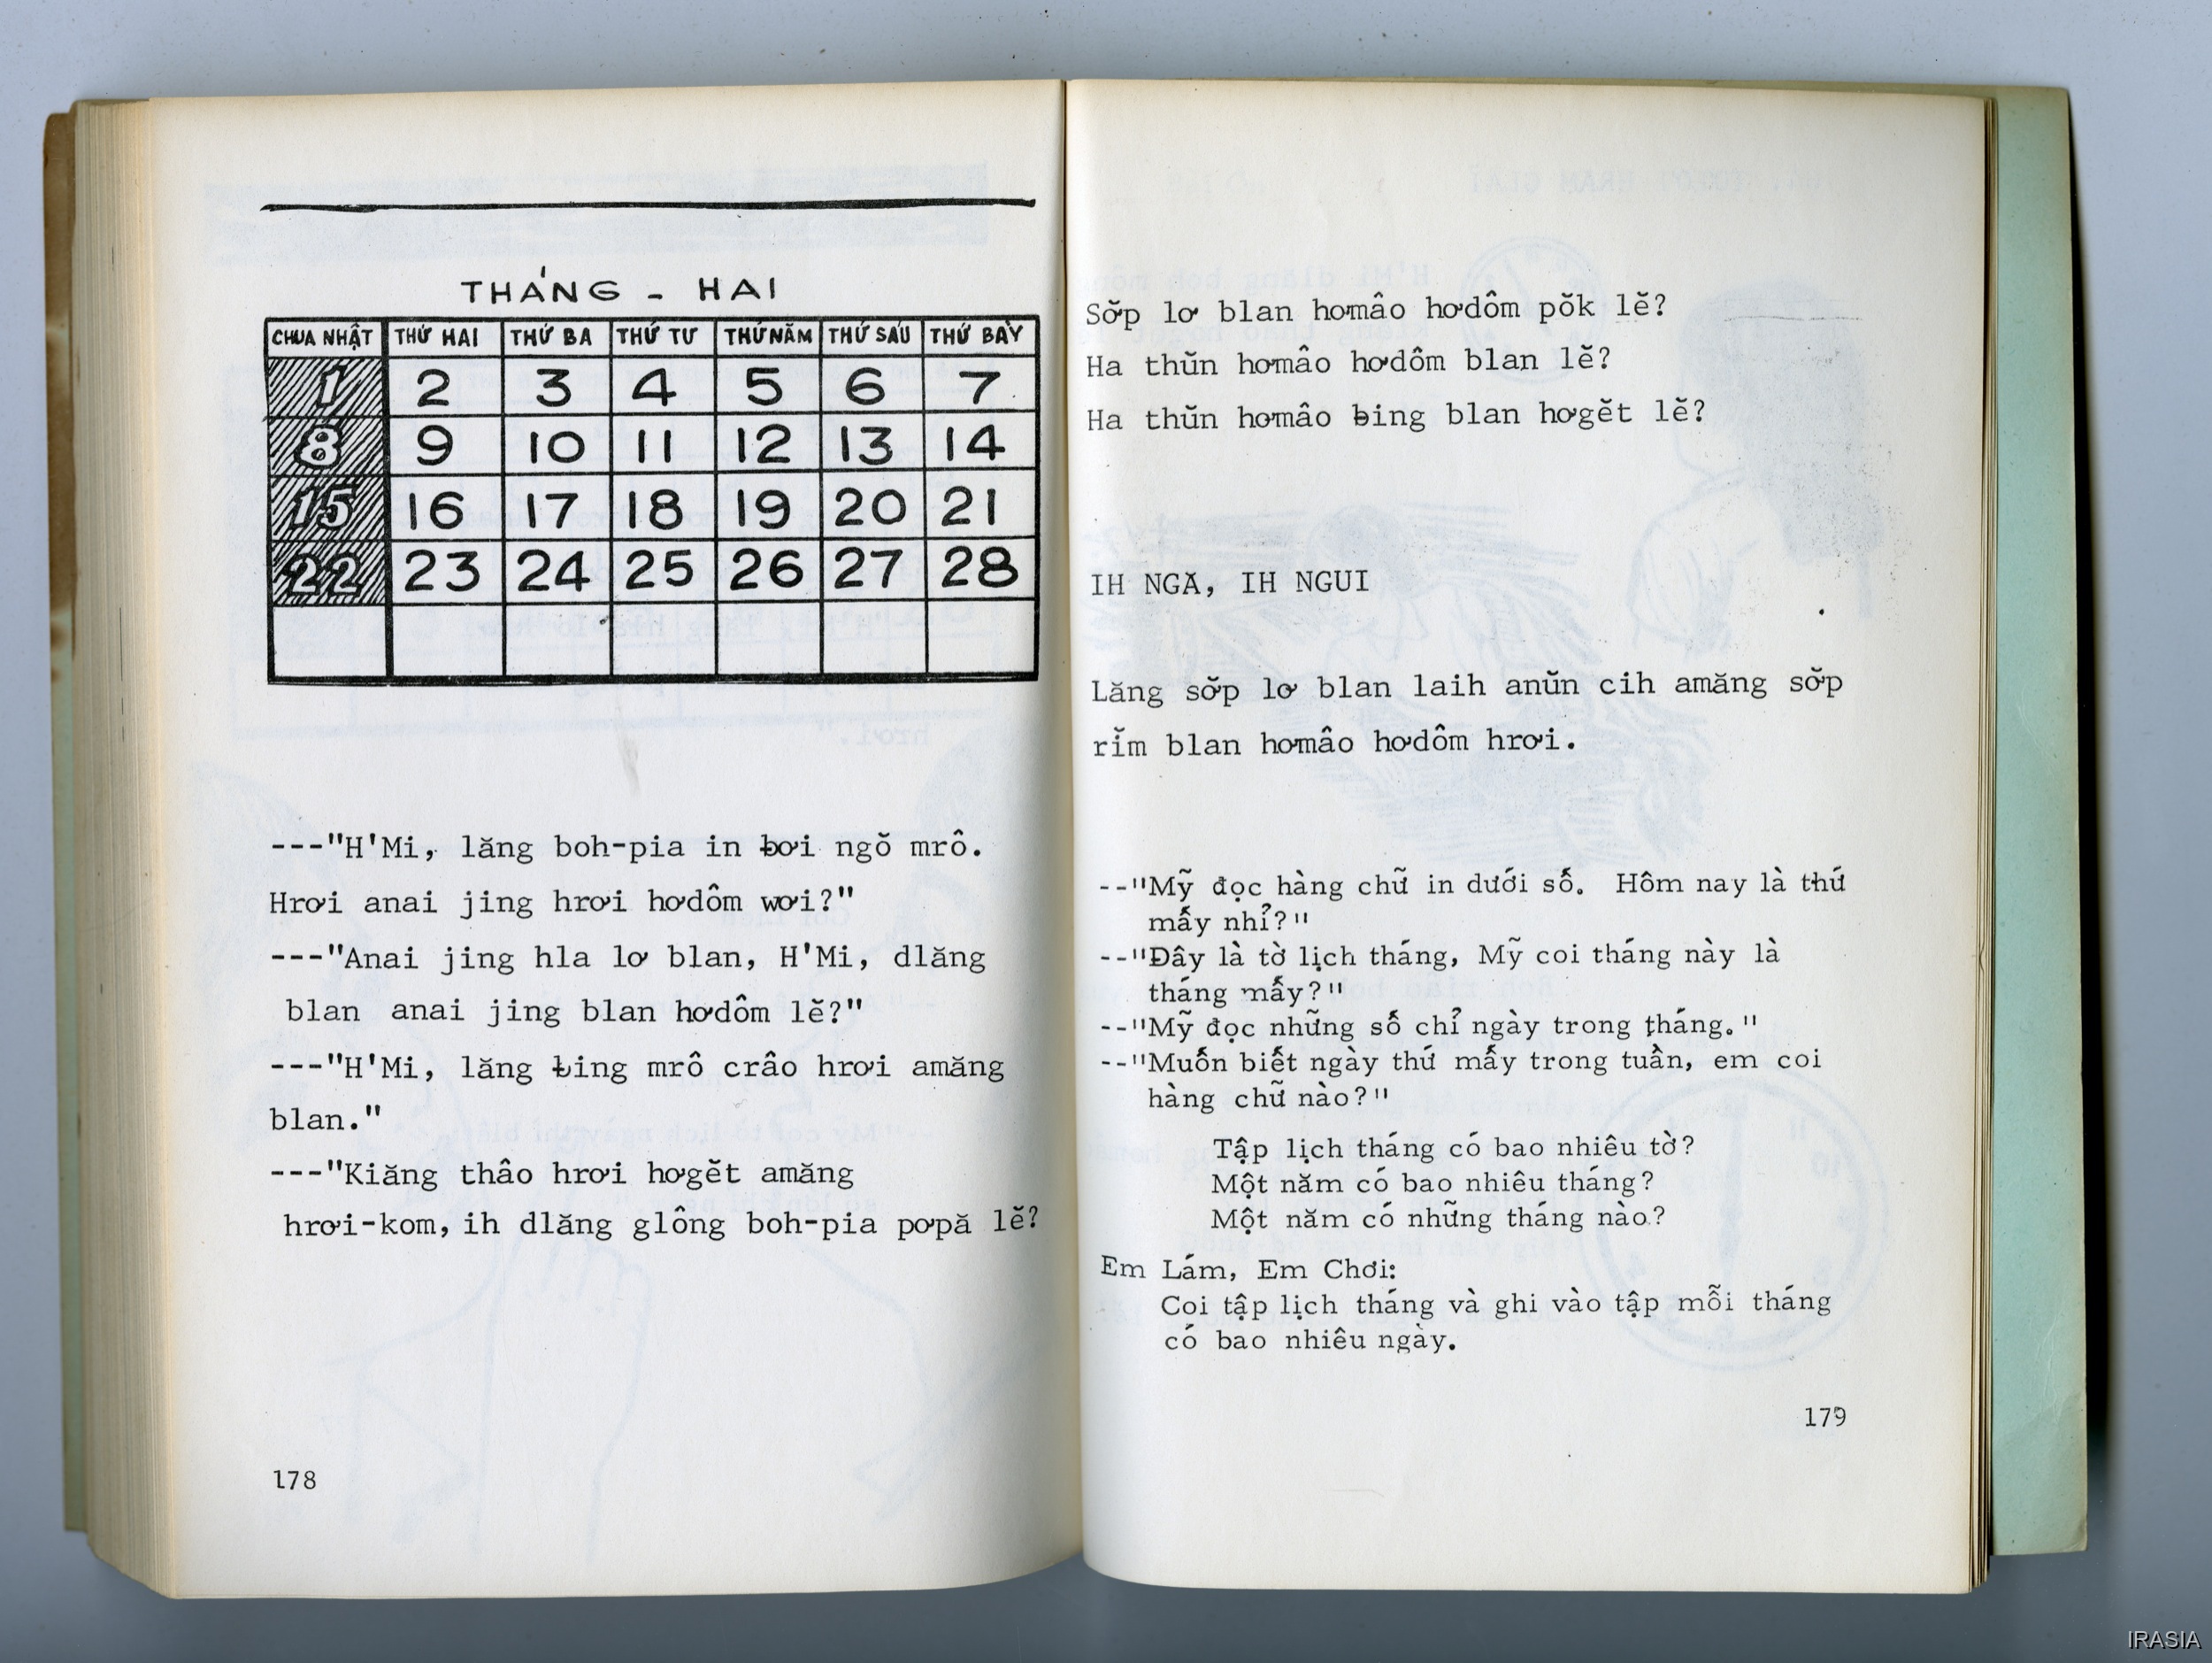 THÁNG - HAI
CHUA NHẬT THỨ HAI THỨ BA THỨ TƯ THỨ NĂM THỨ SÁU THỨ BẢY
1 2 3 4 5 6 7
8 9 10 11 12 13 14
15 16 17 18 19 20 21
22 23 24 25 26 27 28
---"H'Mi, lăng boh-pia in ƀơi ngŏ mrô.
Hrơi anai jing hrơi hơdôm wơi?"
---"Anai jing hla lơ blan, H'Mi, dlăng
blan anai jing blan hơdôm lĕ?"
---"H'Mi, lăng ƀing mrô crâo hrơi amăng
blan."
---"Kiăng thâo hrơi hơgĕt amăng
hrơi-kom, ih dlăng glông boh-pia pơpă lĕ?
178
Sơ̆p lơ blan hơmâo hơdôm pŏk lĕ?
Ha thŭn hơmâo hơdôm blan lĕ?
Ha thŭn hơmâo ƀing blan hơgĕt lĕ?
IH NGĂ, IH NGUI
Lăng sơ̆p lơ blan laih anŭn cih amăng sơ̆p
rĭm blan hơmâo hơdôm hrơi.
--"Mỹ đọc hàng chữ in dưới số. Hôm nay là thứ
mấy nhỉ?"
--"Đây là tờ lịch tháng, Mỹ coi tháng này là
tháng mấy?"
--"Mỹ đọc những số chỉ ngày trong tháng."
--"Muốn biết ngày thứ mấy trong tuần, em coi
hàng chữ nào?"
Tập lịch tháng có bao nhiêu tờ?
Một năm có bao nhiêu tháng?
Một năm có những tháng nào?
Em Lám, Em Chơi:
Coi tập lịch tháng và ghi vào tập mỗi tháng
có bao nhiêu ngày.
179
IRASIA